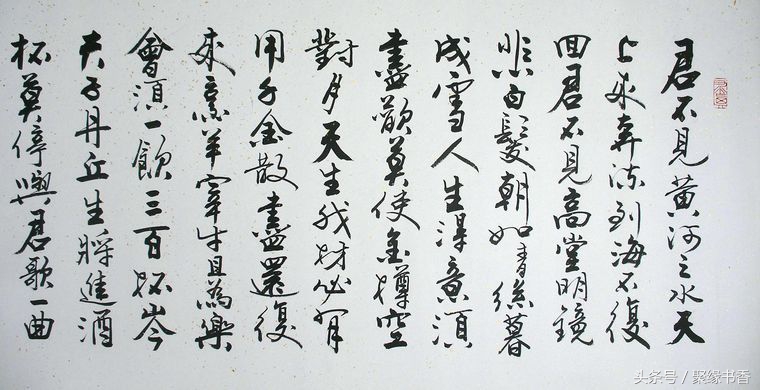 君不見黃河之水天
上來奔流到海不復
回君不見高堂明鏡
悲白髮朝如青絲暮
成雪人生得意須
盡歡莫使金樽空
對月天生我材必有
用千金散盡還復
來烹羊宰牛且為樂
會須一飲三百杯岑
夫子丹丘生將進酒
杯莫停與君歌一曲
头条号 / 聚缘书香